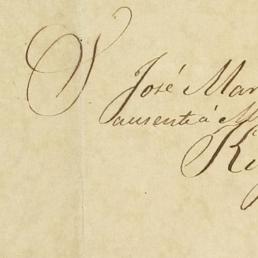 S
José Mar
ausente á M